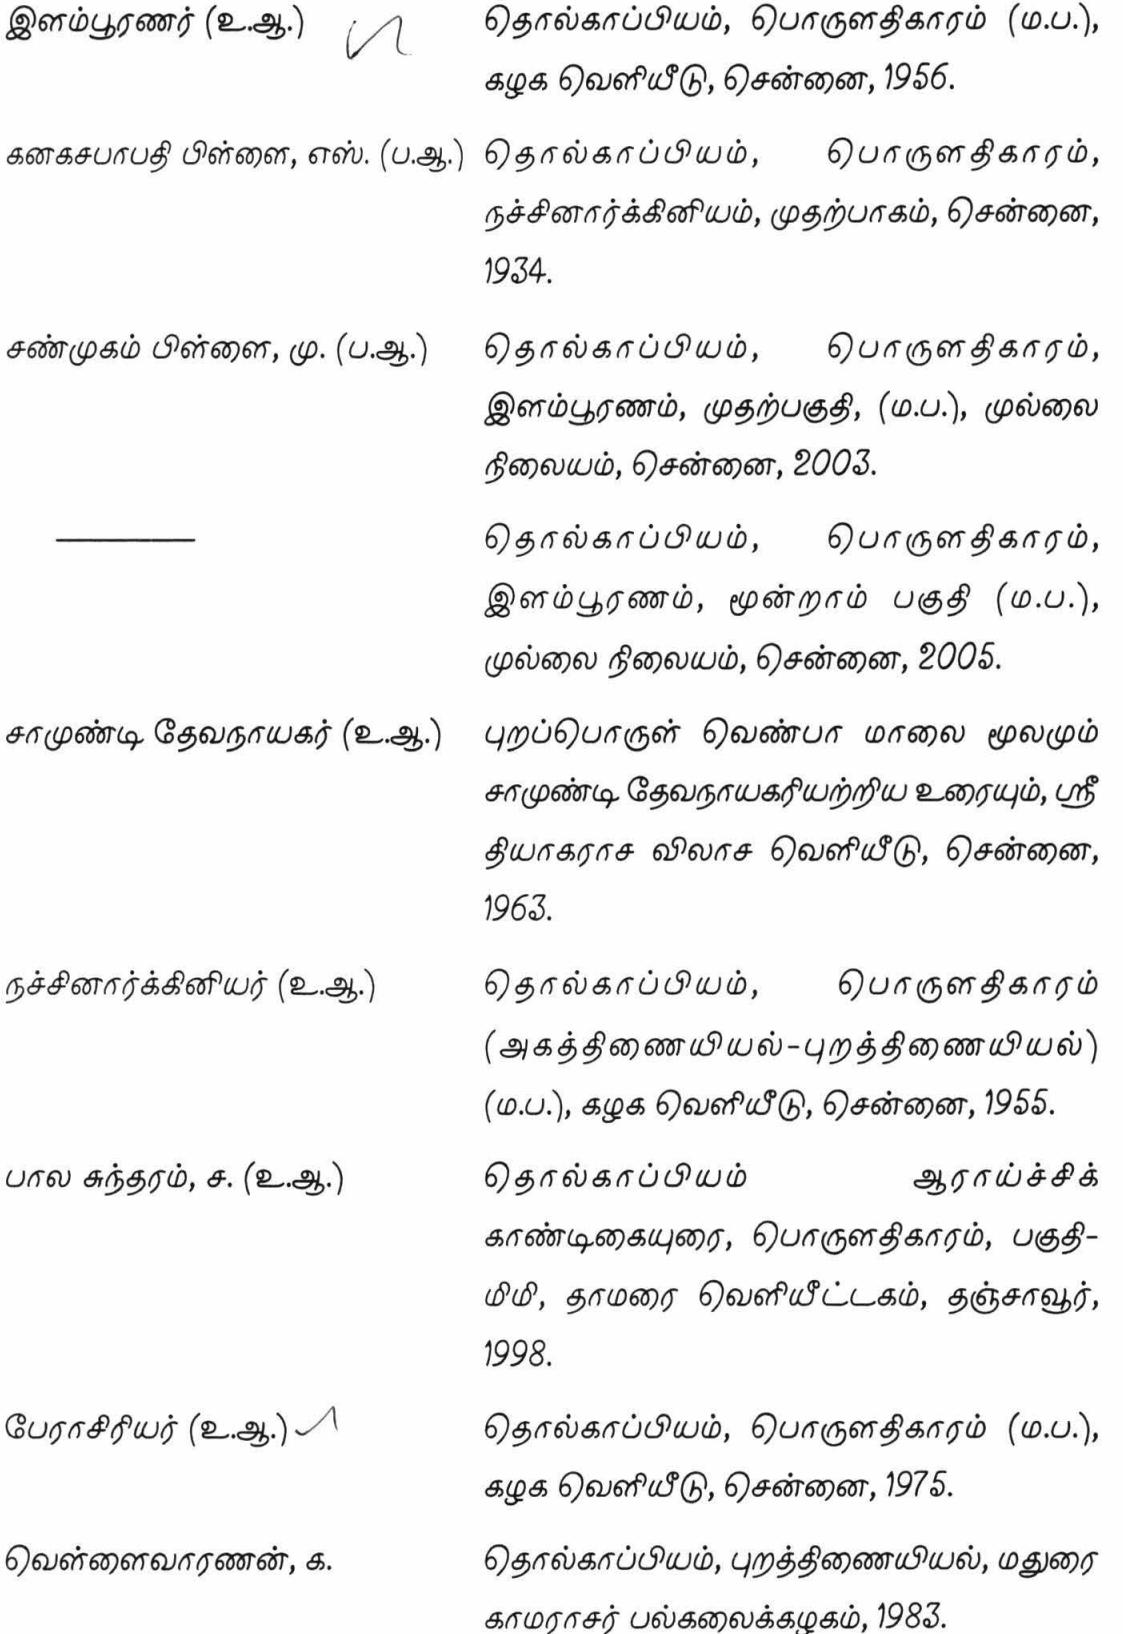 இளம்பூரணர் (உ.ஆ.) தொல்காப்பியம், பொருளதிகாரம் (ம.ப.),
கழக வெளியீடு, சென்னை, 1956.
கனகசபாபதி பிள்ளை, எஸ். (ப.ஆ.) தொல்காப்பியம், பொருளதிகாரம்,
நச்சினார்க்கினியம், முதற்பாகம், சென்னை,
1934.
சண்முகம் பிள்ளை, மு. (ப.ஆ.) தொல்காப்பியம், பொருளதிகாரம்,
இளம்பூரணம், முதற்பகுதி, (ம.ப.), முல்லை
நிலையம், சென்னை, 2003.
தொல்காப்பியம், பொருளதிகாரம்,
இளம்பூரணம், மூன்றாம் பகுதி (ம.ப.),
முல்லை நிலையம், சென்னை, 2005.
சாமுண்டி தேவநாயகர் (உ.ஆ.) புறப்பொருள் வெண்பா மாலை மூலமும்
சாமுண்டி தேவநாயகரியற்றிய உரையும், ஸ்ரீ
தியாகராச விலாச வெளியீடு, சென்னை,
1963.
நச்சினார்க்கினியர் (உ.ஆ.) தொல்காப்பியம், பொருளதிகாரம்
(அகத்திணையியல்-புறத்திணையியல்)
(ம.ப.), கழக வெளியீடு, சென்னை, 1955.
பால சுந்தரம், ச. (உ.ஆ.) தொல்காப்பியம் ஆராய்ச்சிக்
காண்டிகையுரை, பொருளதிகாரம், பகுதி-
மிமி, தாமரை வெளியீட்டகம், தஞ்சாவூர்,
1998.
பேராசிரியர் (உ.ஆ.) தொல்காப்பியம், பொருளதிகாரம் (ம.ப.),
கழக வெளியீடு, சென்னை, 1975.
வெள்ளைவாரணன், க. தொல்காப்பியம், புறத்திணையியல், மதுரை
காமராசர் பல்கலைக்கழகம், 1983.